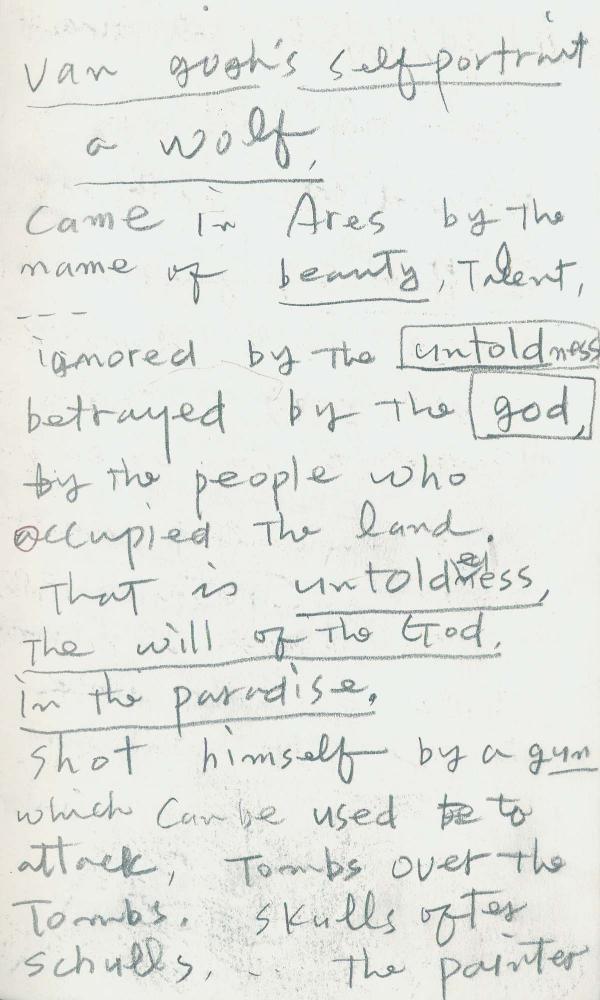 Van gogh's self portrait
a wolf,
Came in Ares by The
name of beauty, Talent,
---
ignored by The untoldness
betrayed by The god,
by The people who
occupied The land.
That is untoldness,
The will of The God,
in The paradise.
Shot himself by a gun
which Can be used to
attack, Tombs over The
Tombs. Skulls ofter
Schulls, .. The painter